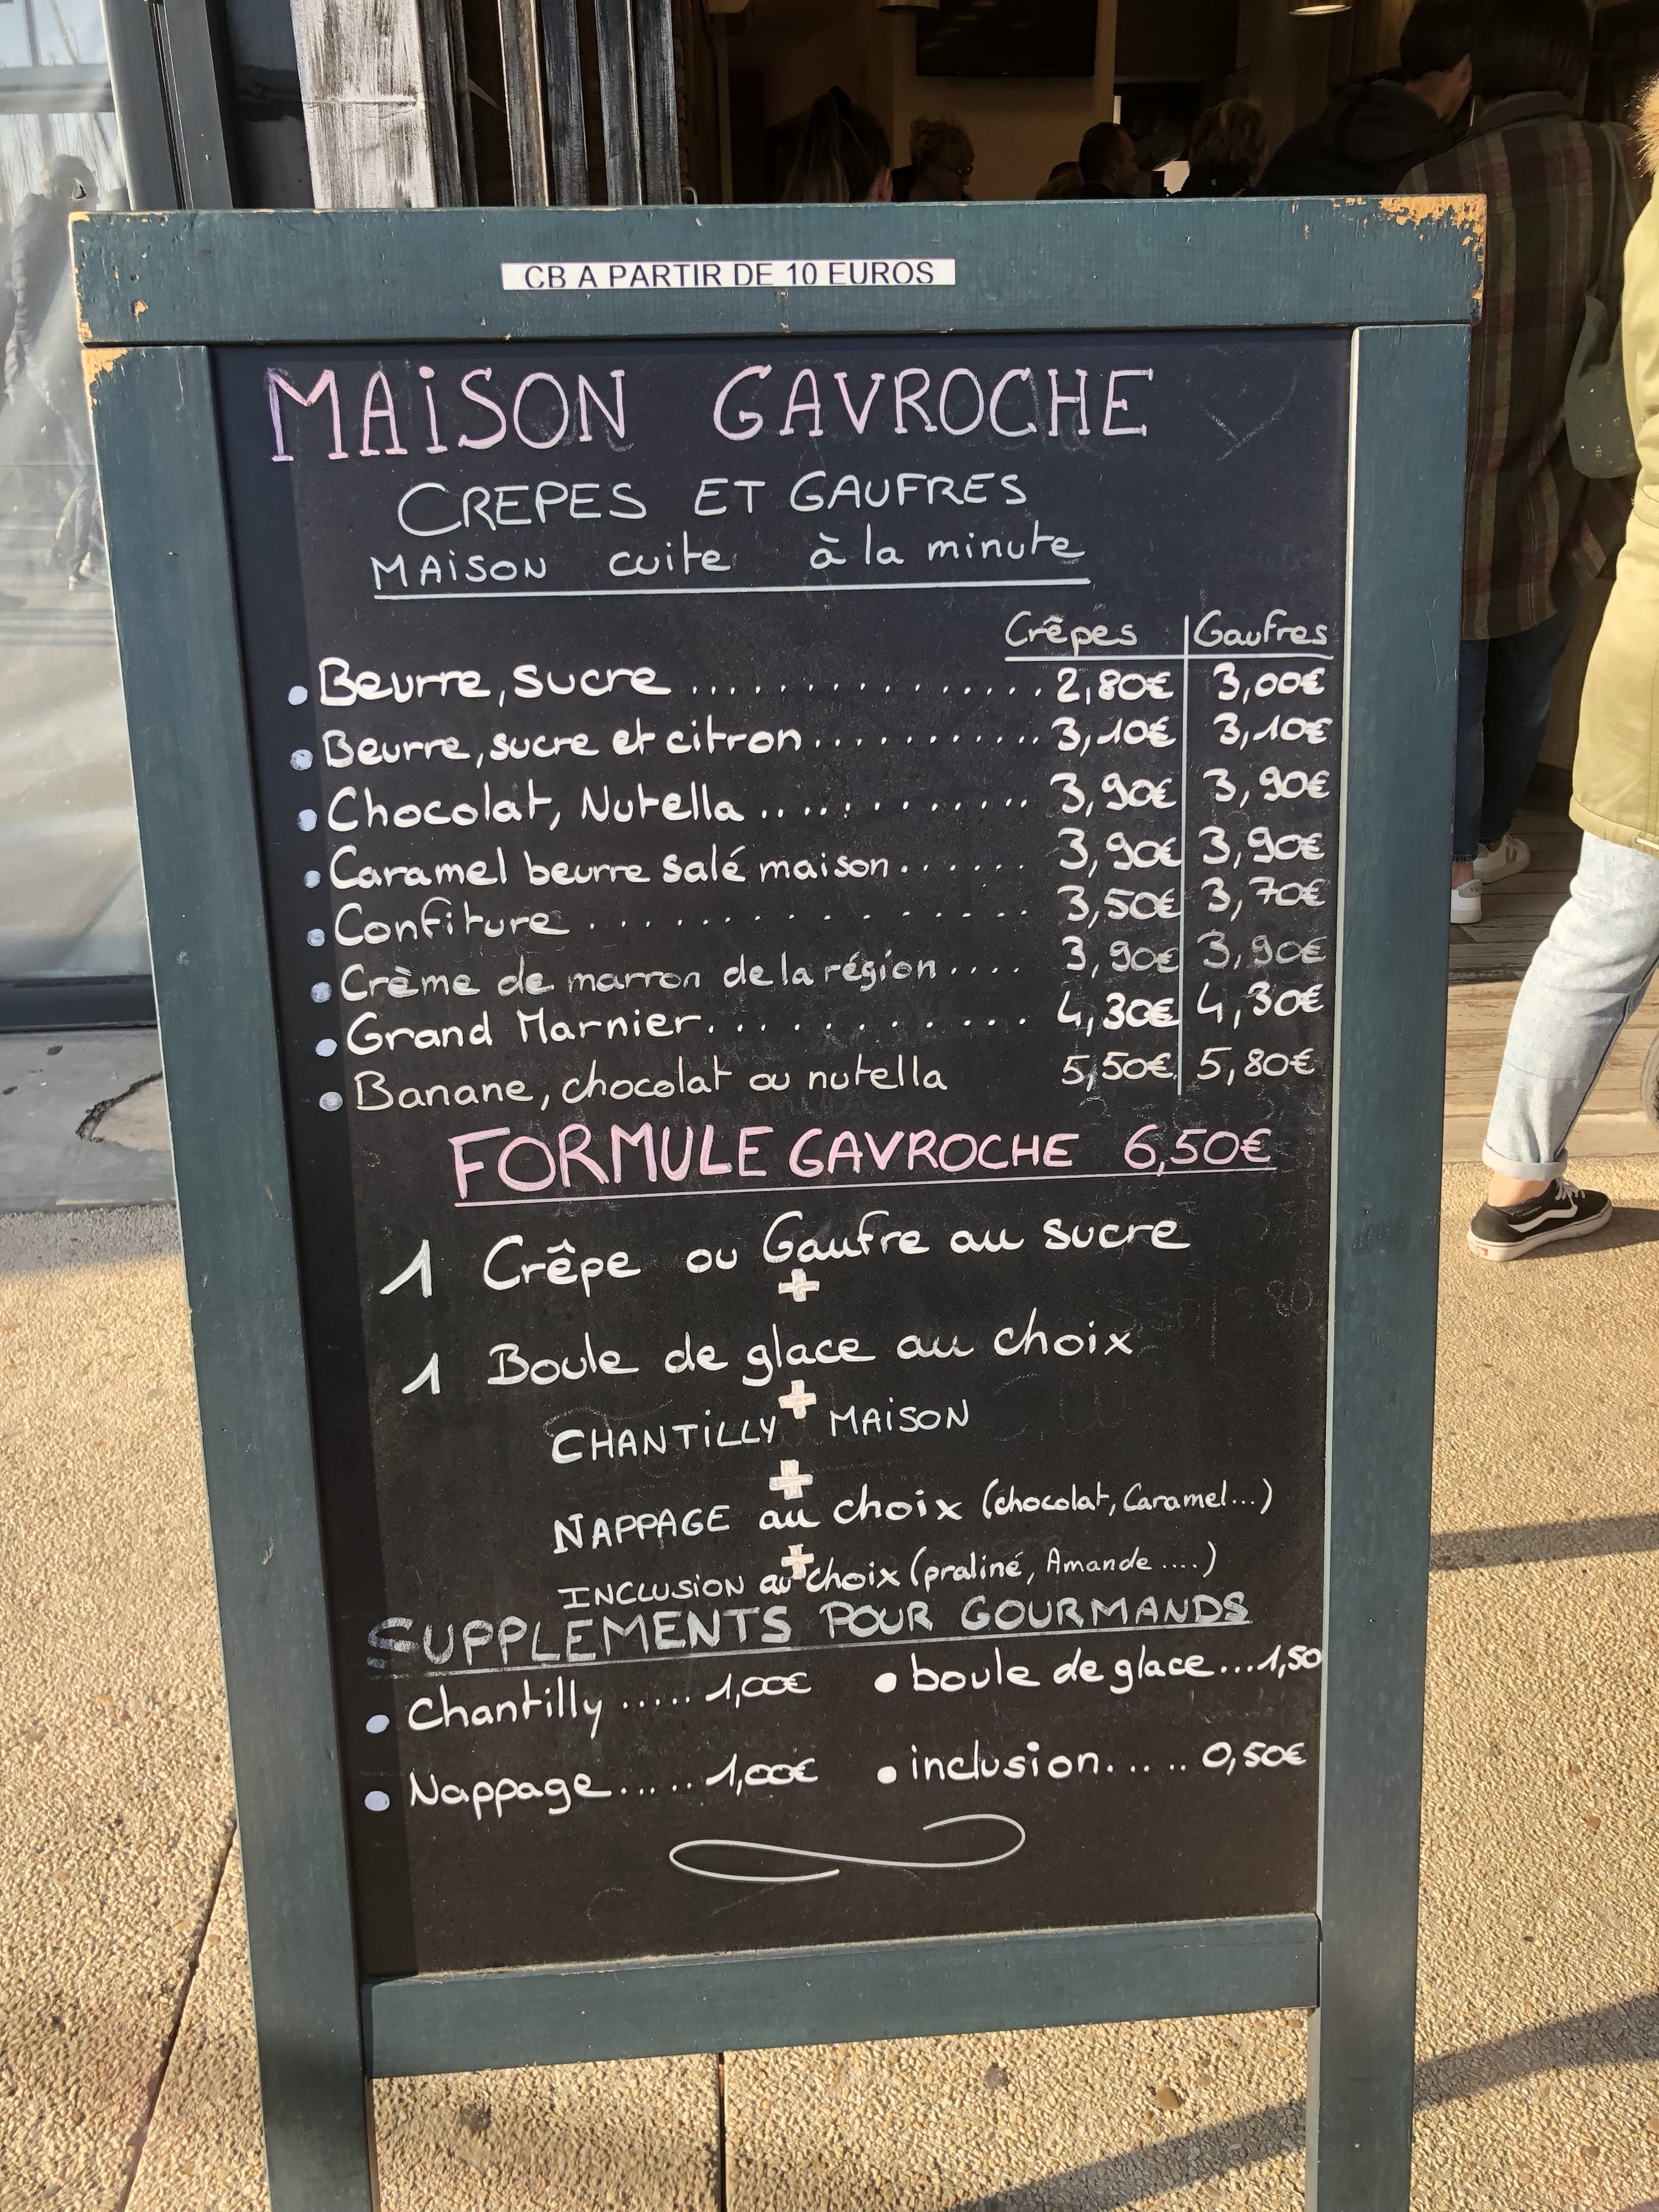 CB A PARTIR DE 10 EUROS
MAiSON GAVROCHE
CREPES ET GAUFRES
MAiSON cuite à la minute
Crêpes Gaufres
• Beurre, sucre ................ 2,80€ 3,00€
• Beurre, sucre et citron ........... 3,10€ 3,10€
• Chocolat, Nutella ............ 3,90€ 3,90€
• Caramel beurre salé maison ...... 3,90€ 3,90€
• Confiture ............... 3,50€ 3,70€
• Crème de marron de la région .... 3,90€ 3,90€
• Grand Marnier ............ 4,30€ 4,30€
• Banane, chocolat ou nutella 5,50€ 5,80€
FORMULE GAVROCHE 6,50€
1 Crêpe ou Gaufre au sucre
+
1 Boule de glace au choix
+
CHANTiLLY MAiSON
+
NAPPAGE au choix (chocolat, Caramel...)
+
INCLUSiON au choix (praliné, Amande ....)
SUPPLEMENTS POUR GOURMANDS
• Chantilly ..... 1,00€ • boule de glace ... 1,50
• Nappage ..... 1,00€ • inclusion ...... 0,50€